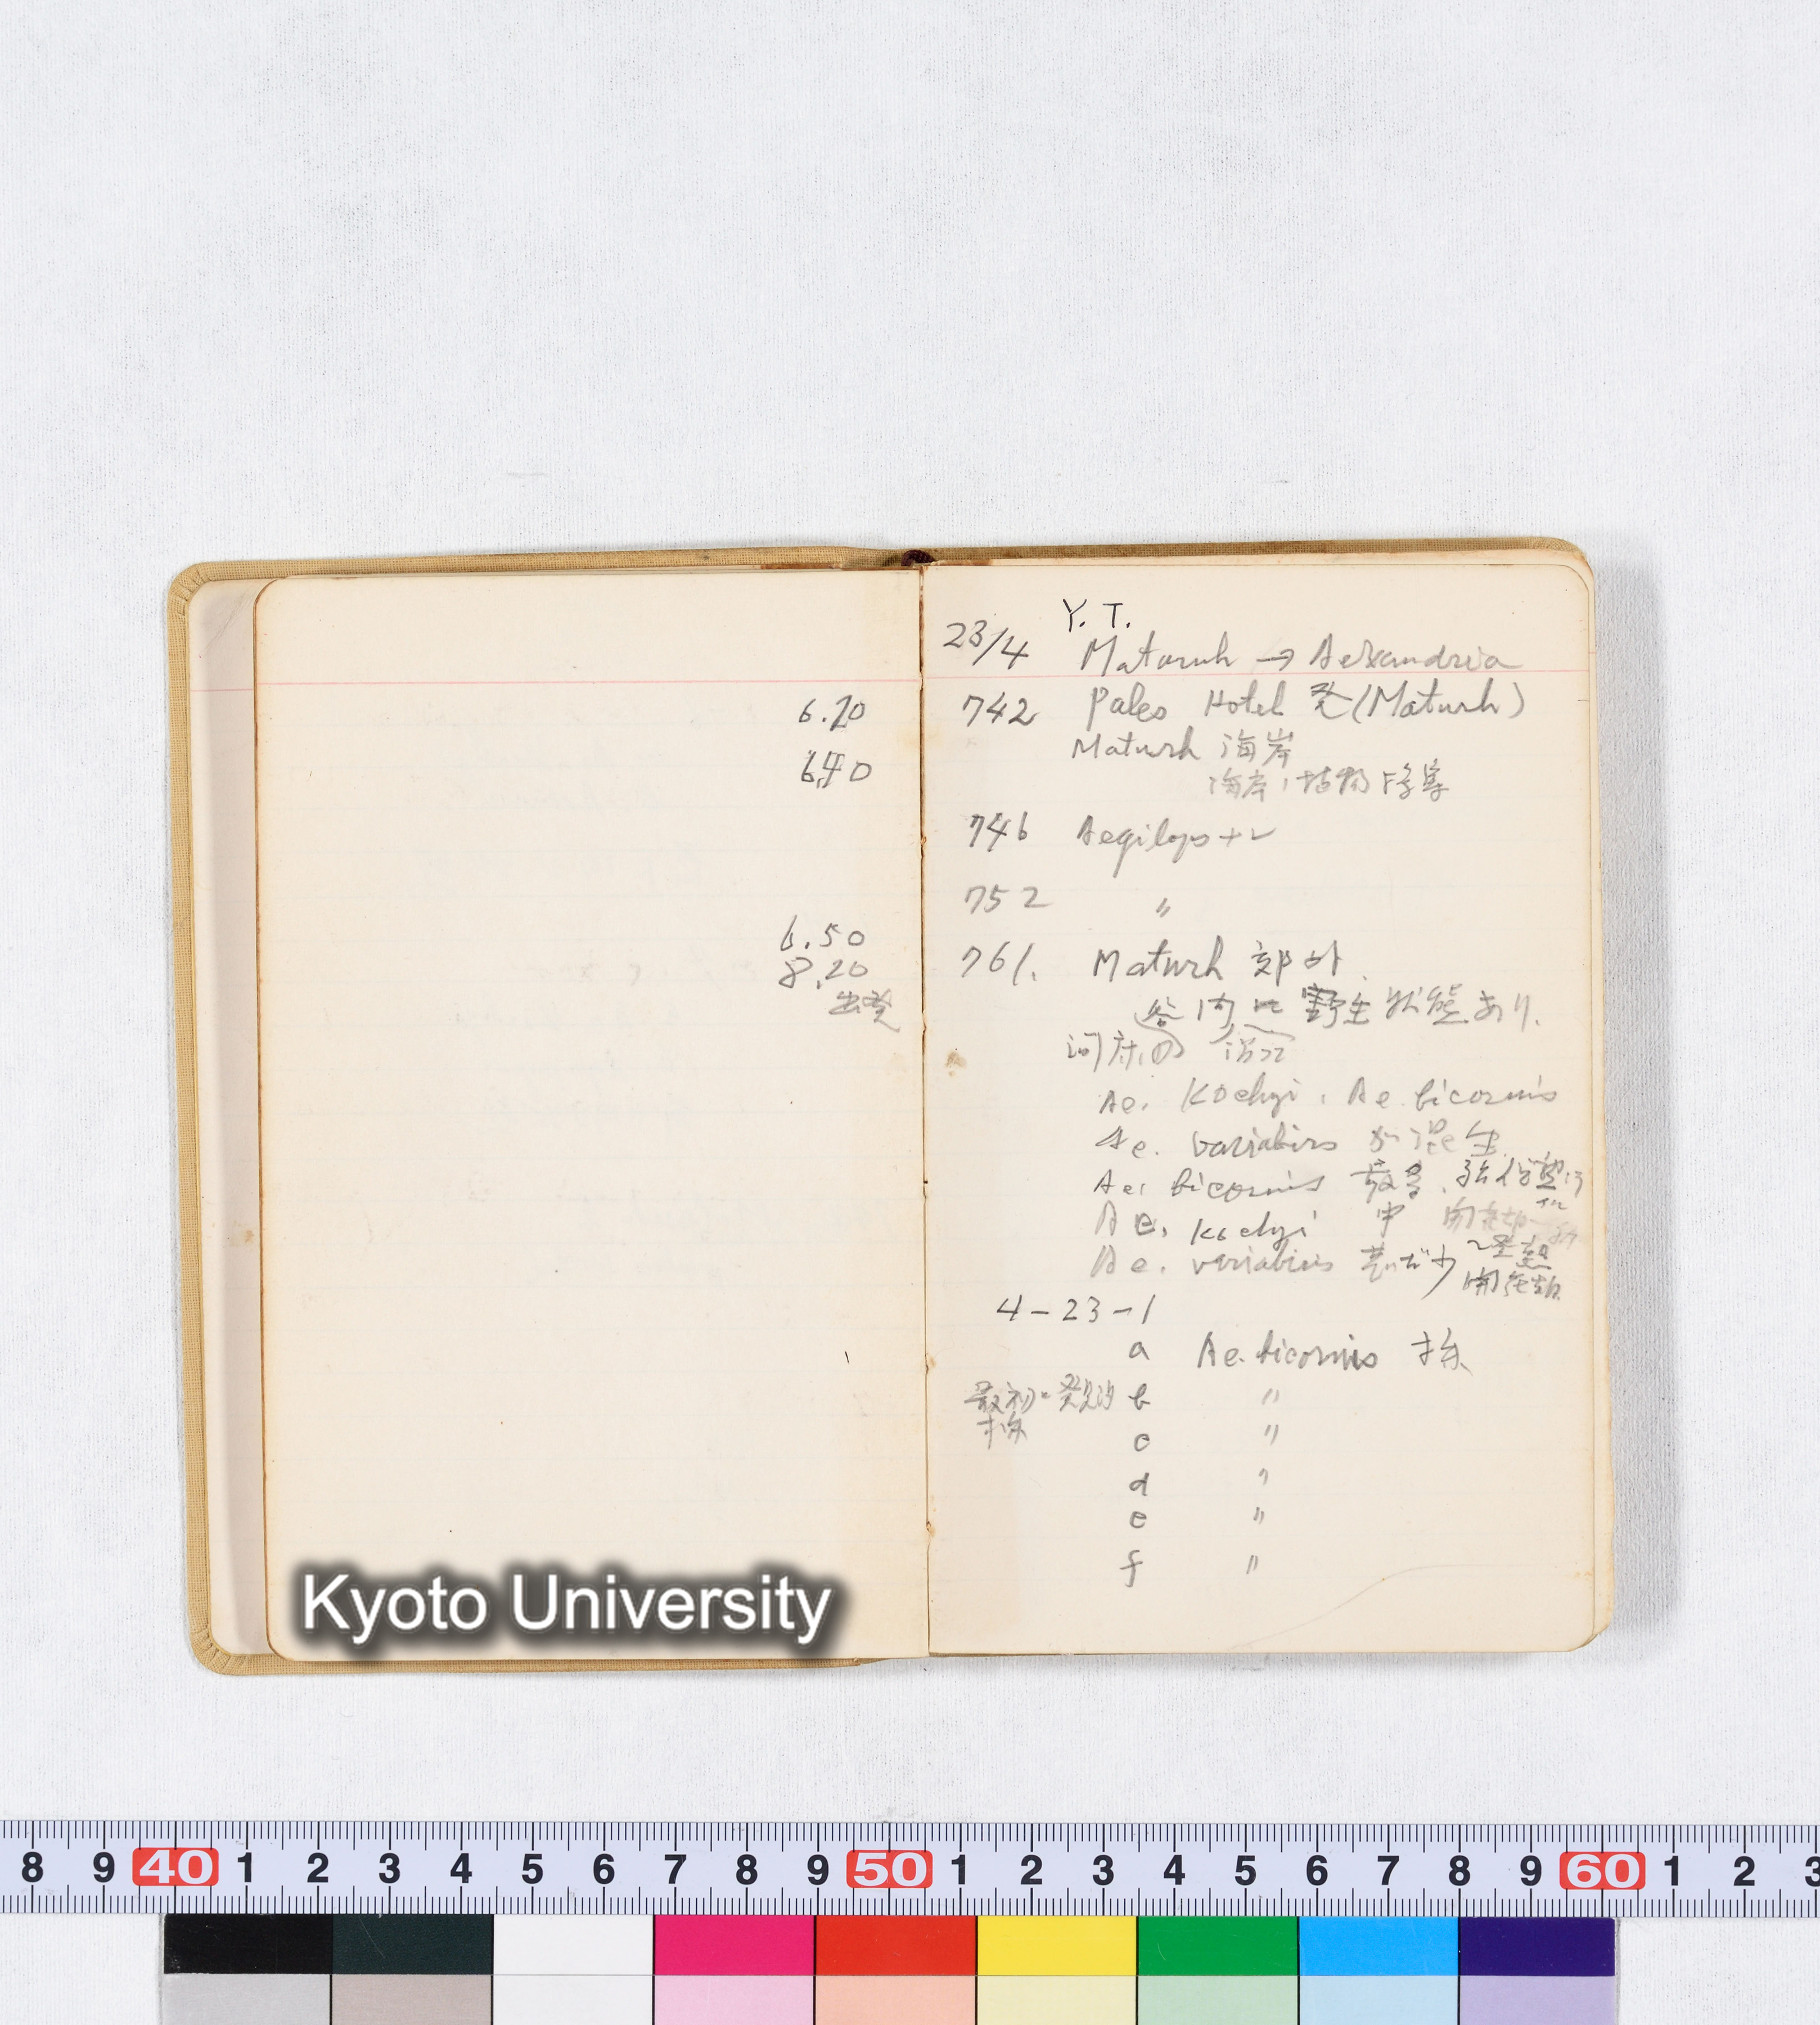 6.20
6.40
6.50
8.20
出発
Y. T.
23/4 Matruh → Alexandria
742 Pales Hotel 発 (Matruh)
Matruh 海岸
海岸ノ植物
746 Aegilops ナシ
752 〃
761. Matruh 郊外.
谷内ニ野生状態あり.
Ae. Kochyi, Ae. bicornis
Ae. variabiis が混生
Ae. bicornis 最多.
Ae. Kochyi 中
Ae. variabiis 甚ダ少
開花期
4-23-1
a Ae. bicornis 採
最初ニ発見的 b 〃
採
c 〃
d 〃
e 〃
f 〃
Kyoto University
8 9 40 1 2 3 4 5 6 7 8 9 50 1 2 3 4 5 6 7 8 9 60 1 2 3